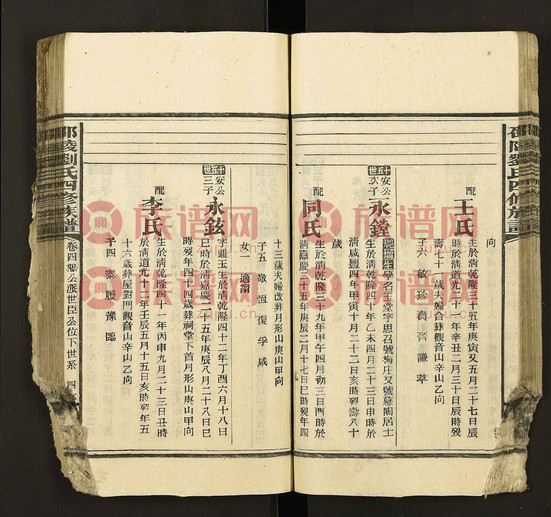 向
配
王氏
生於清乾隆三十五年庚寅又五月二十七日辰
時歿於清道光二十一年辛丑二月三十日辰時歿
壽七十二歲夫婦合葬觀音山辛山乙向
子六 敏 珍 謙 萃
十五世
安公次子
永鏜
學名玉堂字思召號梅庄又號慕陶居士
生於清乾隆四十年乙未四月二十三日申時於
清咸豐四年甲寅十月二十二日亥時歿壽八十
歲
配
同氏
生於清乾隆三十九年甲午四月初三日酉時於
清嘉慶二十五年庚辰二月十七日巳時歿年四
十三歲夫婦改葬月形山庚山甲向
子五 敬 恆 復 孚 咸
女一 適蕭
十五世
安公三子
永鉉
字鼎玉生於清乾隆四十二年丁酉六月十八日
巳時於清嘉慶二十五年庚辰八月二十八日巳
時歿年四十四歲葬祠堂下首月形山庚山甲向
配
李氏
生於清乾隆四十一年丙申九月二十三日丑時
於清道光十二年壬辰五月十五日亥時歿年五
十六歲葬屋對門觀音山辛山乙向
子四 泰 履 豫 臨
邵陵劉氏四修族譜
卷四
族谱网